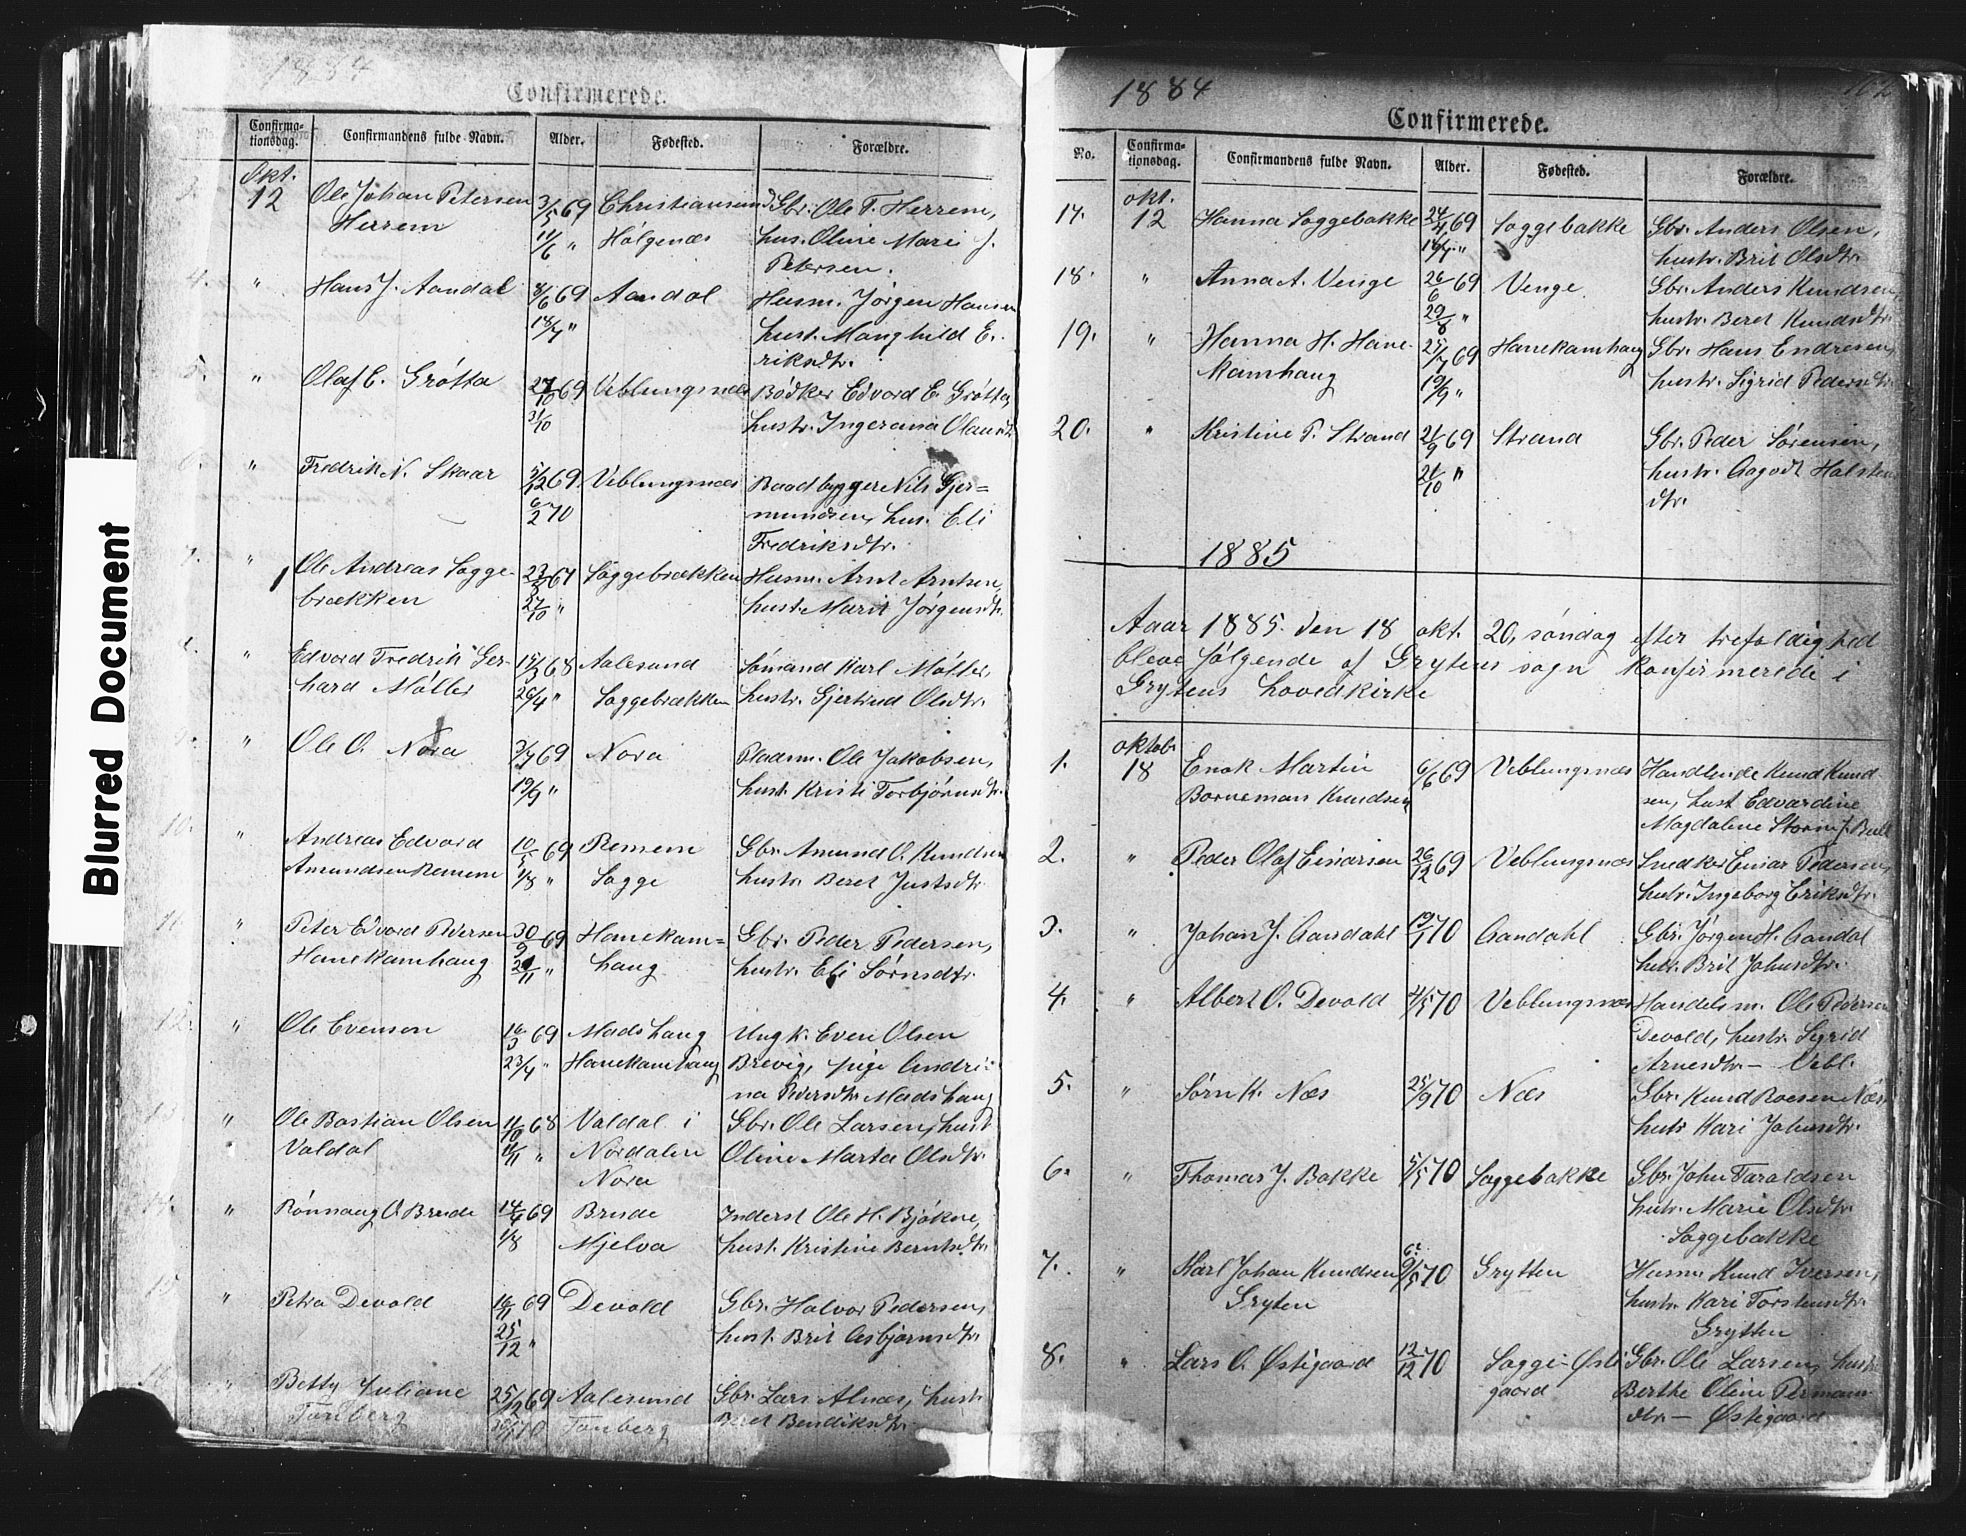 Blurred Document
1884
Confirmerede.
Confirma-
tionsdag.
Confirmandens fulde Navn.
Alder.
Fødested.
Forældre.
3. Okt. 12 Ole Johan Petersen 3/5 69 Christiansund Gbr. Ole T. Herrem,
Herrem 11/6 " Holgenæs hus. Oline Marie J.
Petersen.
4. " Hans J. Aandal 8/6 69 Aandal Husm. Jørgen Hansen
18/7 " hust. Manghild E.
riksdtr.
5. " Olaf E. Grøtta 27/10 69 Veblungsnæs Bødker Edvard E. Grøtta,
31/10 hustr. Ingeranna Olausdt.
6. " Fredrik N. Skaar 69 Veblungsnæs Baadbygger Nils Gjer=
6/2 70 mundsen, hus. Eli
Fredriksdtr.
7. " Ole Andreas Sogge- 69 Soggebrækken Husm. Arnt Arntsen,
brækken 27/10 " hust. Marit Jørgensdtr.
8. " Edvard Fredrik Ger- 15/3 68 Aalesund Sømand Karl Møller,
hard Møller 26/4 " Soggebrækken hustr. Gjertrud Olsdtr.
9. " Ole O. Nora 3/7 69 Nora Pladsm. Ole Jakobsen,
19/9 " hust. Kristi Torbjørnsdtr.
10. " Andreas Edvard 10/5 69 Remem Gbr. Amund O. Knudsen
Amundsen Remem 1/8 " Sogge hustr. Beret Justsdtr.
11. " Peter Edvard Pedersen 30/9 69 Hanekam= Gbr. Peder Pedersen,
Hanekamhaug 21/11 " haug hustr. Eli Sørnsdtr.
12. " Ole Evensen 16/3 69 Madshaug Ungk. Even Olsen
23/4 " Hanekamhaug Brevig, pige Andri-
na Pedersdtr. Madshaug
13. " Ole Bastian Olsen 11/10 68 Valdal i Gbr. Ole Larsen, hust
Valdal 11/11 " Nordalen Oline Marta Olsdtr.
Nora
14. " Rønnaug O. Brude 14/6 69 Brude Inderst Ole H. Bjøkne,
1/8 Mjelva hust. Kristine Berntsdtr.
15. " Petra Devold 16/11 69 Devold Gbr. Halvor Pedersen,
25/12 " hust. Brit Asbjørnsdtr.
16. " Betty Juliane 25/12 69 Aalesund Gbr. Lars Alnæs, hust.
Tonberg 70 Tonberg Beret Bendiksdtr.
1884
Confirmerede.
No.
Confirma-
tionsdag.
Confirmandens fulde Navn.
Alder.
Fødested.
Forældre.
17. okt. 12 Hanna Soggebakke 24/4 69 Soggebakke Gbr. Anders Olsen,
" hustr. Brit Olsdtr.
18. " Anna A. Venge 26/6 69 Venge Gbr. Anders Knudsen,
29/8 " hustr. Beret Knudsdtr.
19. " Hanna H. Hane- 25/7 69 Hanekamhaug Gbr. Hans Endresen,
kamhaug 19/9 " hustr. Sigrid Pedersdtr.
20. " Kristine P. Strand 21/9 69 Strand Gbr. Peder Sørensen,
21/10 " hustr. Aagodt Halstens
dtr.
1885
Aaar 1885. den 18 okt. 20, søndag efter trefoldighed
bleve følgende af Grytens sogn konfirmerede i
Grytens hovedkirke
1. oktob. 18 Enok Martin 6/6 69 Veblungsnæs Handlende Knud Knud
Borneman Knudsen, sen, hust Edvardine
Magdalene Storm f. Bull
2. " Peder Olaf Einarsen 26/12 69 Veblungsnæs Snedker Einar Pedersen,
hustr. Ingeborg Eriksdtr.
3. " Johan J. Aandahl 19/1 70 Aandahl Gbr. Jørgen H. Aandal
hustr. Brit Johnsdtr.
4. " Albert O. Devold 4/5 70 Veblungsnæs Handelsm. Ole Pedersen
Devold, hustr. Sigrid
Arnesdtr. – Vebl.
5. " Sørn K. Næs 25/9 70 Næs Gbr. Knud Roesen Næs
hustr Kari Johnsdtr.
6. " Thomas J. Bakke 5/5 70 Soggebakke Gbr. John Taraldsen
hustr. Marie Olsdtr.
Soggebakke
7. " Karl Johan Knudsen 9/5 70 Grytten Husm Knud Iversen,
Gryten hustr. Kari Torstensdtr.
Grytten
8. " Lars O. Østigaard 12/12 70 Sogge-Østi Gbr. Ole Larsen, hustr.
gaard Berthe Oline Permans
dtr. – Østigaard